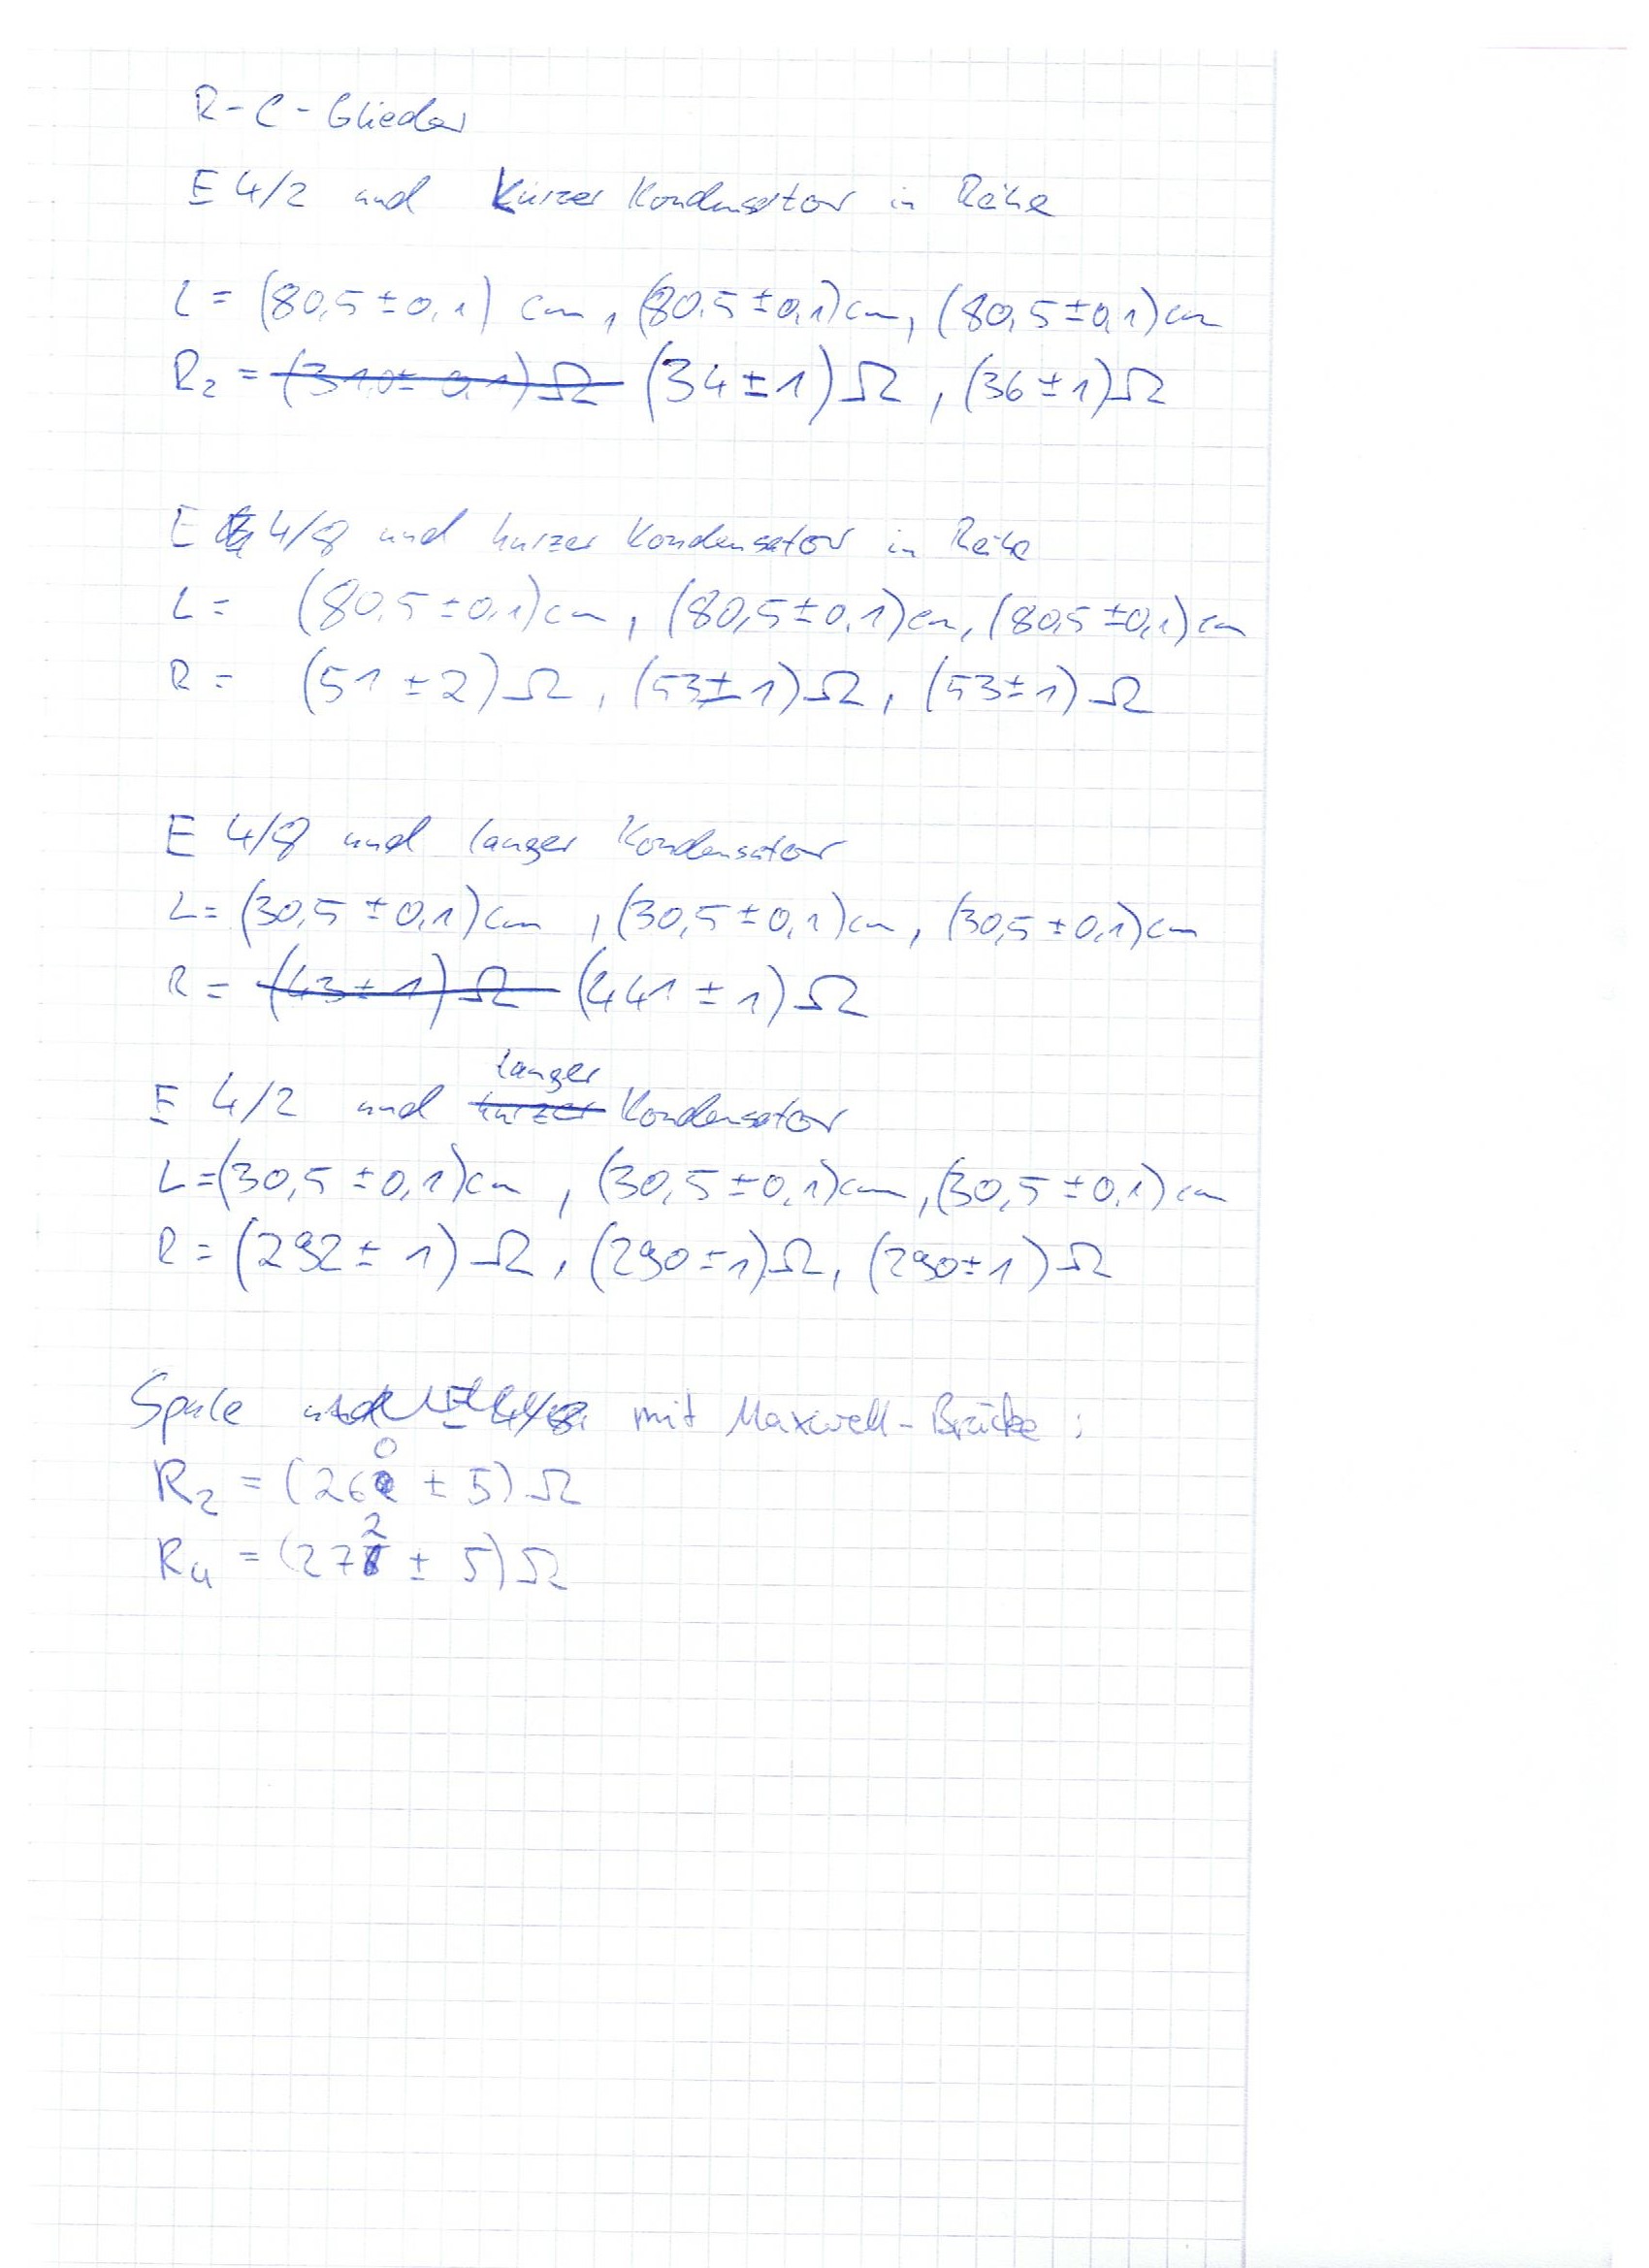 R-C-Glieder
E 4/2 und kurzer Kondensator in Reihe
L = (80,5 ± 0,1) cm, (80,5 ± 0,1) cm, (80,5 ± 0,1) cm
R₂ = (31,0 ± 0,1) Ω (34 ± 1) Ω, (36 ± 1) Ω
E 4/8 und kurzer Kondensator in Reihe
L = (80,5 ± 0,1) cm, (80,5 ± 0,1) cm, (80,5 ± 0,1) cm
R = (51 ± 2) Ω, (53 ± 1) Ω, (53 ± 1) Ω
E 4/8 und langer Kondensator
L = (30,5 ± 0,1) cm, (30,5 ± 0,1) cm, (30,5 ± 0,1) cm
R = (43 ± 1) Ω (441 ± 1) Ω
langer
E 4/2 und kurzer Kondensator
L = (30,5 ± 0,1) cm, (30,5 ± 0,1) cm, (30,5 ± 0,1) cm
R = (292 ± 1) Ω, (290 ± 1) Ω, (290 ± 1) Ω
Spule mit Maxwell-Brücke:
R₂ = (260 ± 5) Ω
R₄ = (272 ± 5) Ω